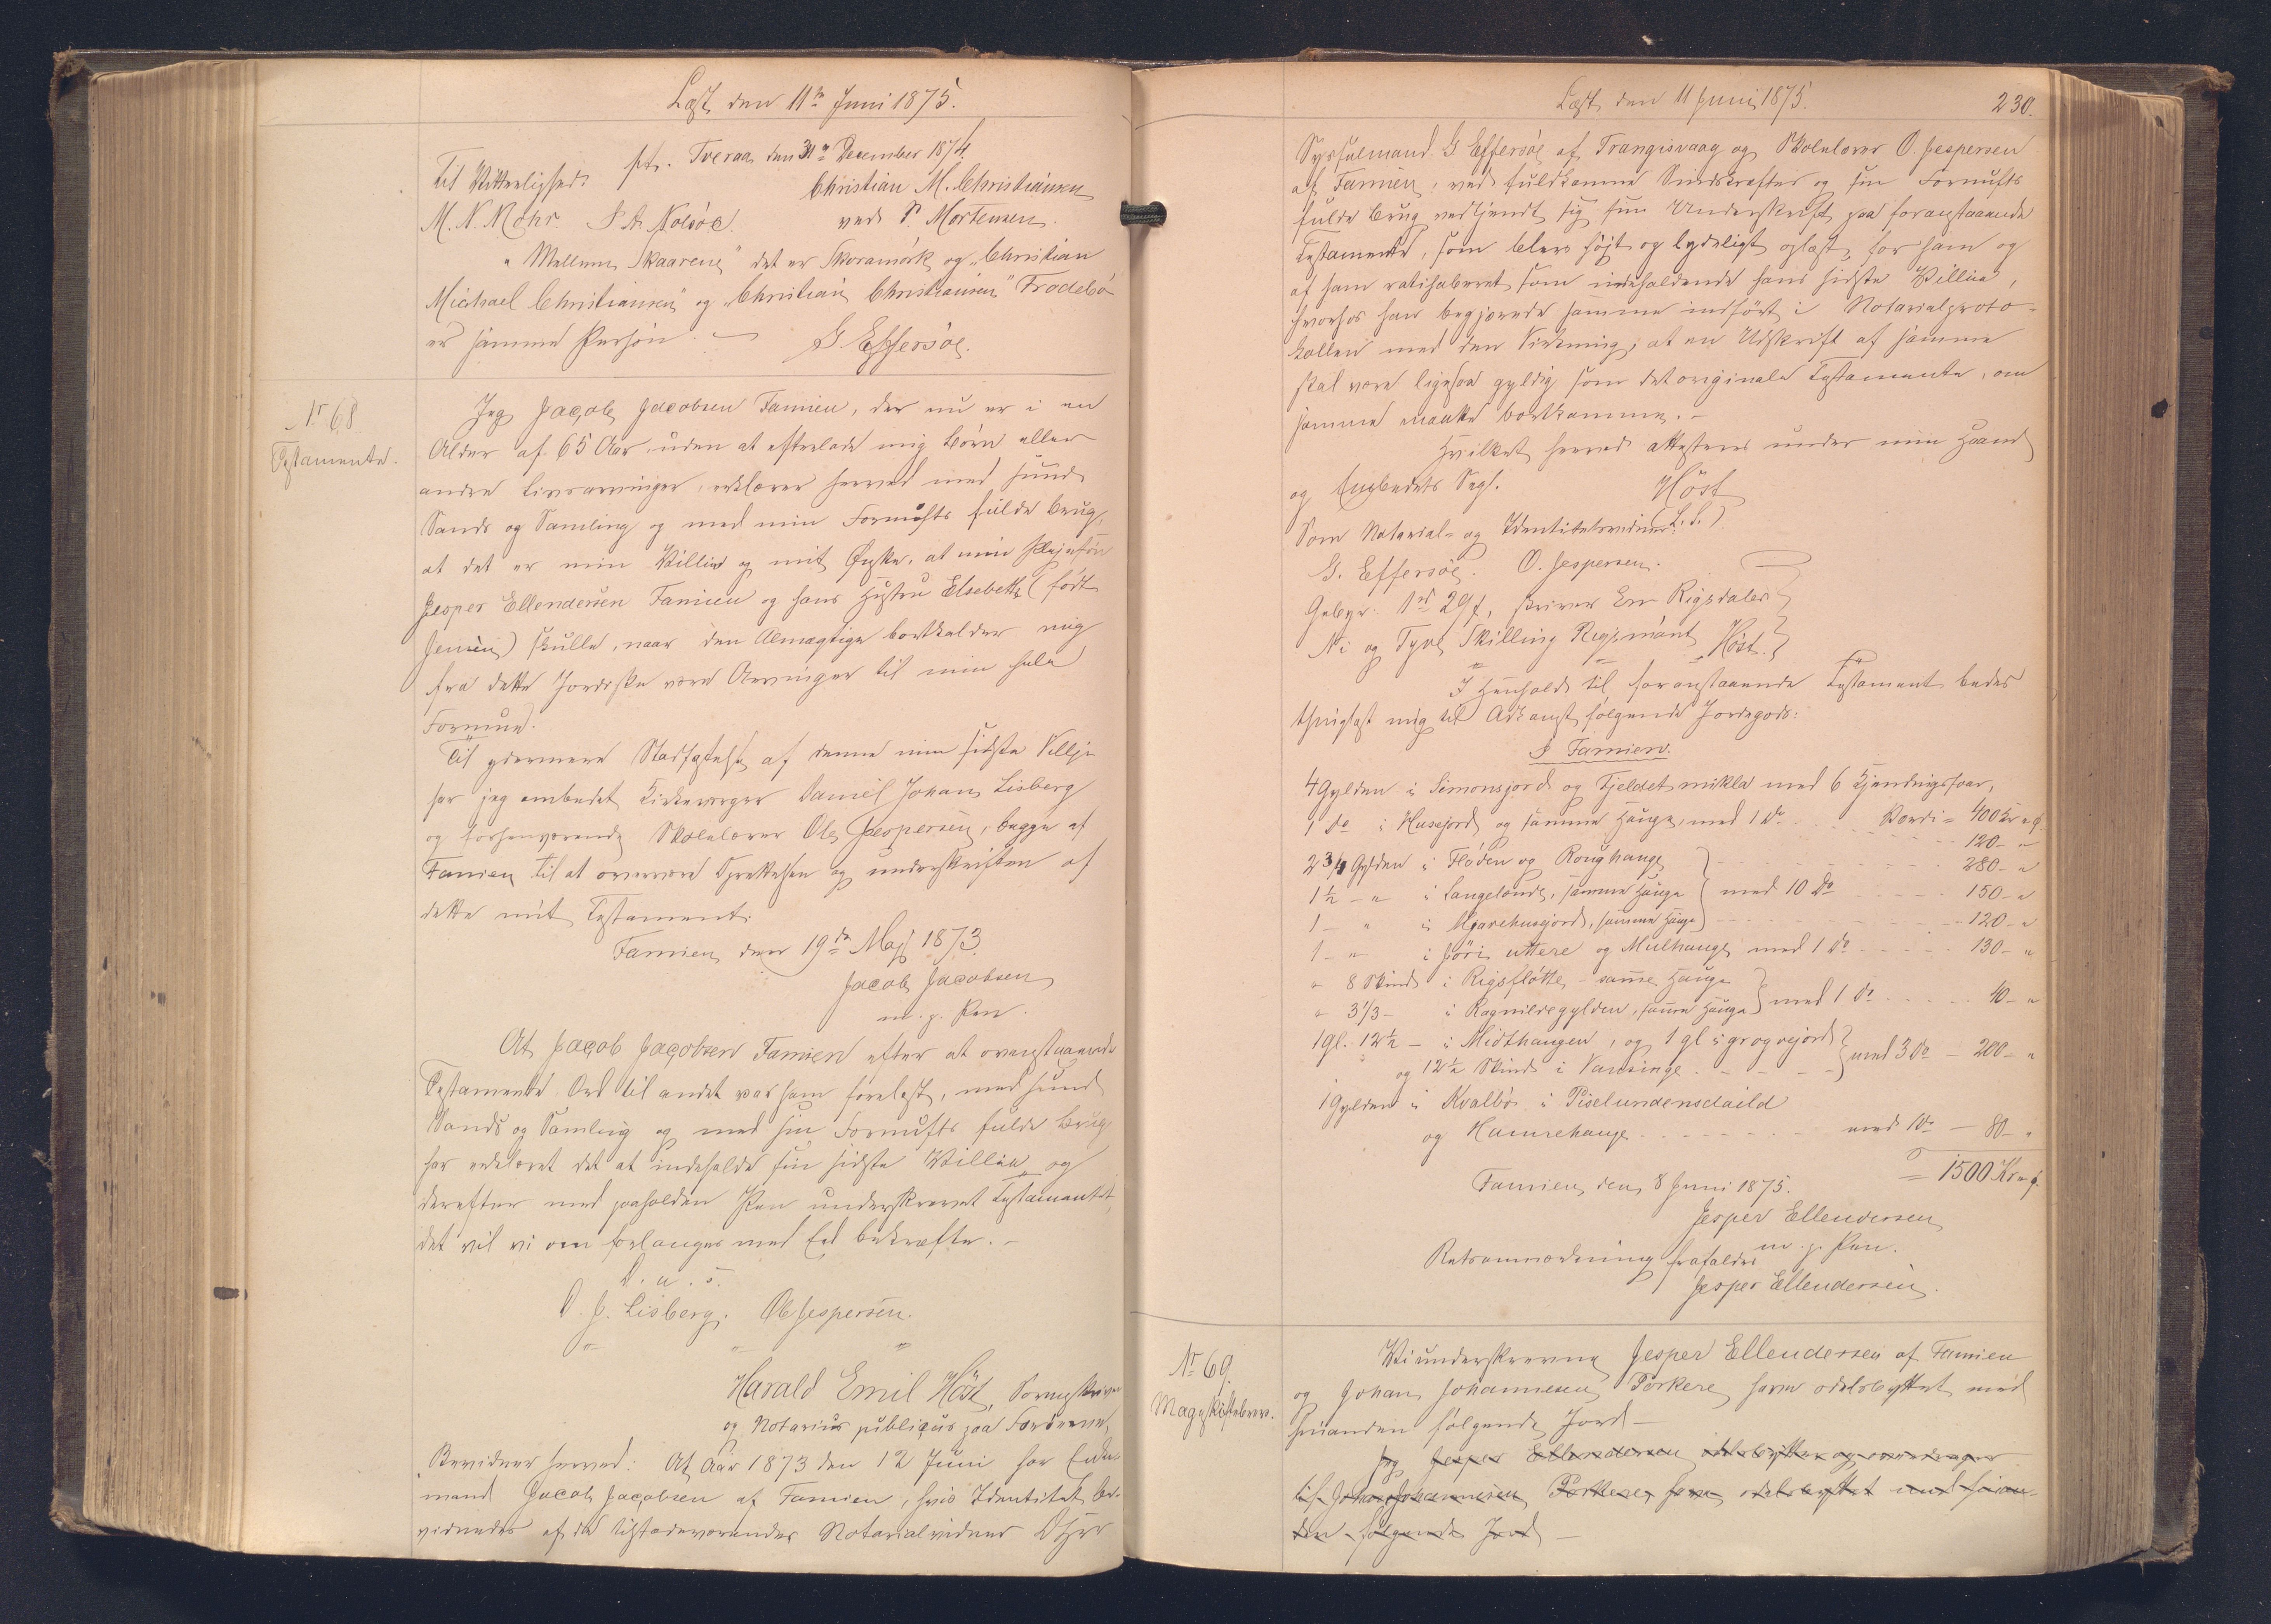 Læst den 11te Juni 1875.
pt. Tveraa den 31te December 1874.
Til Vitterlighed:
Christian M. Christiansen
M. N. Mohr. P. A. Nolsøe.
ved P. Mortensen.
"Mellum Skaarene" det er Skoramörk og "Christian
Michael Christiansen" og "Christian Christiansen" Frodebö
er samme Person. — G. Effersöe.
No 68
Testamente.
Jeg Jacob Jacobsen Famien, der nu er i en
Alder af 65 Aar uden at efterlade mig Börn eller
andre Livsarvinger, erklærer herved med sund
Sands og Samling og med min Fornufts fulde brug,
at det er min Villie og mit Ønske, at min Plejesön
Jesper Ellendersen Famien og hans Hustru Elsebeth (född
Jensen) skulle, naar den Almægtige bortkalder mig
fra dette Jordiske være Arvinger til min hele
Formue.
Til ydermere Stadfæstelse af denne min sidste Villje
har jeg ombudet Kirkeværger Daniel Johan Lisberg
og forhenværende Skolelærer Ole Jespersen, begge af
Famien til at overvære Oprettelsen og underskriften af
dette mit Testament.
Famien den 19de Maj 1873.
Jacob Jacobsen
m. p. Pen.
At Jacob Jacobsen Famien efter at ovenstaaende
Testamente Ord til andet var ham forelæst, med sund
Sands og Samling og med sin Fornufts fulde brug
har erklæret det at indeholde sin sidste Villie og
derefter med paaholden Pen underskrevet Testamentet,
det vil vi om forlanges med Ed bekræfte. —
D. u. s.
D. J. Lisberg. Ole Jespersen.
Harald Emil Höst, Sorenskriver
og Notarius publicus paa Færöerne,
Bevidner herved: At Aar 1873 den 12 Juni har Enke-
mand Jacob Jacobsen af Famien, hvis Identitet be-
vidnedes af de tilstedeværende Notarialvidner DHrr
Læst den 11 Juni 1875.
230.
Sysselmand G. Effersöe af Trangisvaag og Skolelærer O. Jespersen
af Famien, ved fuldkomne Sindskræfter og sin Fornufts
fulde brug vedkjendt sig sin Underskrift paa foranstaaende
Testamente, som blev höjt og lydeligt oplæst for ham og
af ham ratihaberet som indeholdende hans sidste Villie,
hvorhos han begjærede samme indfört i Notarialproto-
kollen med den Virkning, at en Udskrift af samme
skal være ligesaa gyldig som det originale Testamente, om
samme maatte bortkomme. —
Hvilket herved attesteres under min Haand
og Embedets Segl.
Höst
(L. S.)
Som Notarial- og Identitetsvidner:
G. Effersöe. O. Jespersen.
Gebyr: 1rd 29s, skriver Een Rigsdaler
Ni og Tyve Skilling Rigsmönt. Höst.
I Henhold til foranstaaende Testament bedes
thinglæst mig til Adkomst følgende Jordegods:
I Famien.
4 Gylden i Simonsjord og Fjeldet mikla med 6 Kjendingsfaar,
Værdi = 400 Kr " ø.
1 do i Husejord og samme Hauge, med 1 do 120 - "
2 3/4 Gylden i Flöden og Roughauge 280 - "
1½ - " i Langelands, samme Hauge med 10 do 150 - "
1 - " i Uparhusejord, samme Hauge 120 - "
1 - " i Jöri uttere og Mulhauge med 1 do 130 - "
" 8 Skind i Rigsflötte - samme Hauge
" 3 1/3 - i Ragnildegylden, samme Hauge med 1 do 40 - "
1 gl. 12½ - i Midthaugen, og 1 gl i grogvejord
og 12½ Skind i Vansinge med 3 do - 200 - "
1 Gylden i Kvalbö i Piselundensdaild
og Hamrehauge med 1 do - 80 - "
= 1500 Kr " ø.
Famien, den 8 Juni 1875.
Jesper Ellendersen
m. p. Pen.
Retsanmærkning frafaldes
Jesper Ellendersen.
No 69.
Mageskiftebrev.
Vi underskrevne Jesper Ellendersen af Famien
og Johan Johannesen Porkere have odelsbyttet med
hinanden følgende Jord —
Jeg Jesper Ellendersen odelsbytter og overdrager
til Johan Johannesen Porkere, have odelsbyttet med hinan-
den følgende Jord —